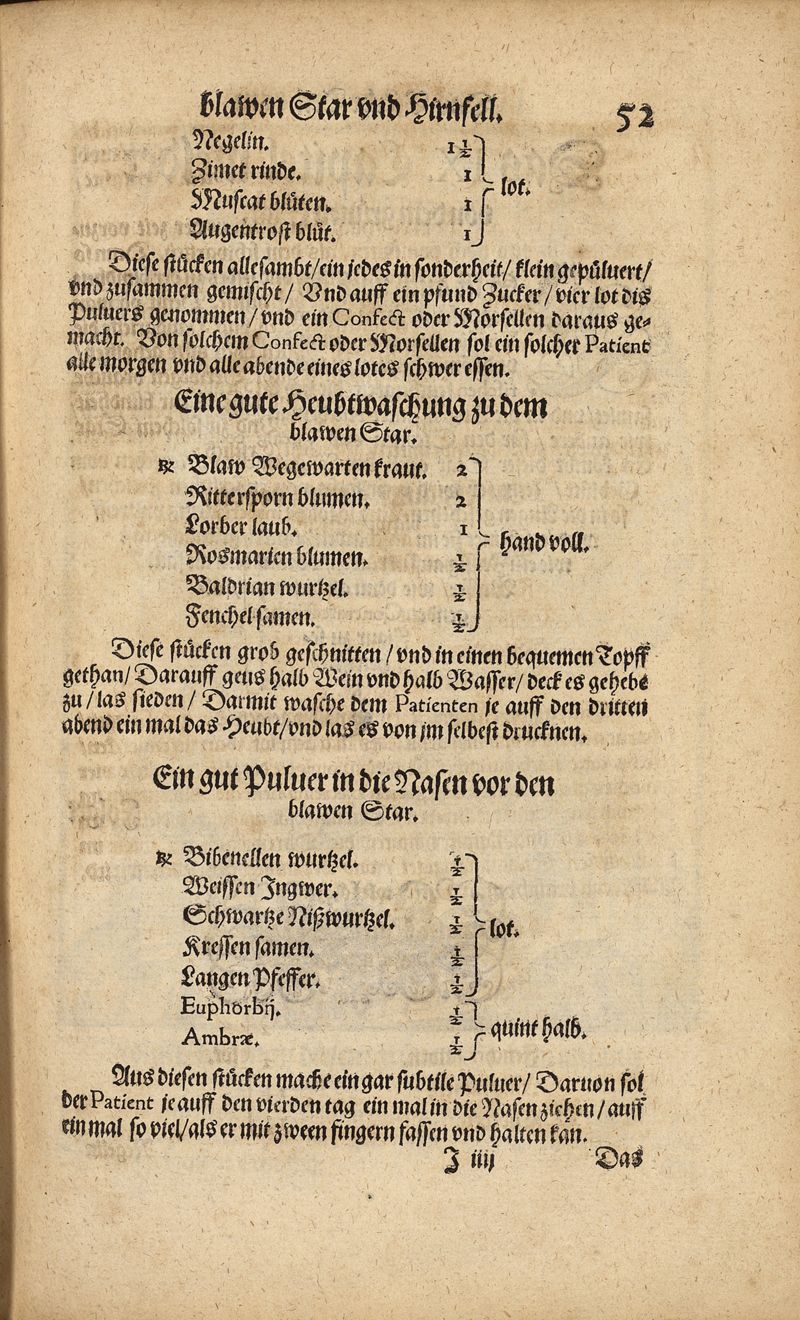 blawen Star vnd Hirnfell. 52
Negelin. 1½
Zimet rinde. 1
Muscat blüten. 1
Augentrost blüt. 1
lot.
Diese stücken allesambt/ein jedes in sonderheit/ klein gepüluert/
vnd zusammen gemischt/ Vnd auff ein pfund Zucker/vier lot dis
Puluers genommen/vnd ein Confect oder Morsellen daraus ge⸗
macht. Von solchem Confect oder Morsellen sol ein solcher Patient
alle morgen vnd alle abende eines lotes schwer essen.
Eine gute Heubtwaschung zu dem
blawen Star.
℞ Blaw Wegewarten kraut. 2
Rittersporn blumen. 2
Lorber laub. 1
Rosmarien blumen. ½
Baldrian wurtzel. ½
Fenchel samen. ½
hand voll.
Diese stücken grob geschnitten/vnd in einen bequemen Topff
gethan/Darauff geus halb Wein vnd halb Wasser/deck es gehebe
zu/las sieden/ Darmit wasche dem Patienten je auff den dritten
abend ein mal das Heubt/vnd las es von jm selbest drucknen.
Ein gut Puluer in die Nasen vor den
blawen Star.
℞ Bibenellen wurtzel. ½
Weissen Ingwer. ½
Schwartze Nißwurtzel. ½
Kressen samen. ½
Langen Pfeffer. ½
lot.
Euphorbij. ½
Ambræ. ½
quint halb.
Aus diesen stücken mache ein gar subtile Puluer/ Daruon sol
der Patient je auff den vierden tag ein mal in die Nasen ziehen/auff
ein mal so viel/als er mit zween fingern fassen vnd halten kan.
J iiij Das